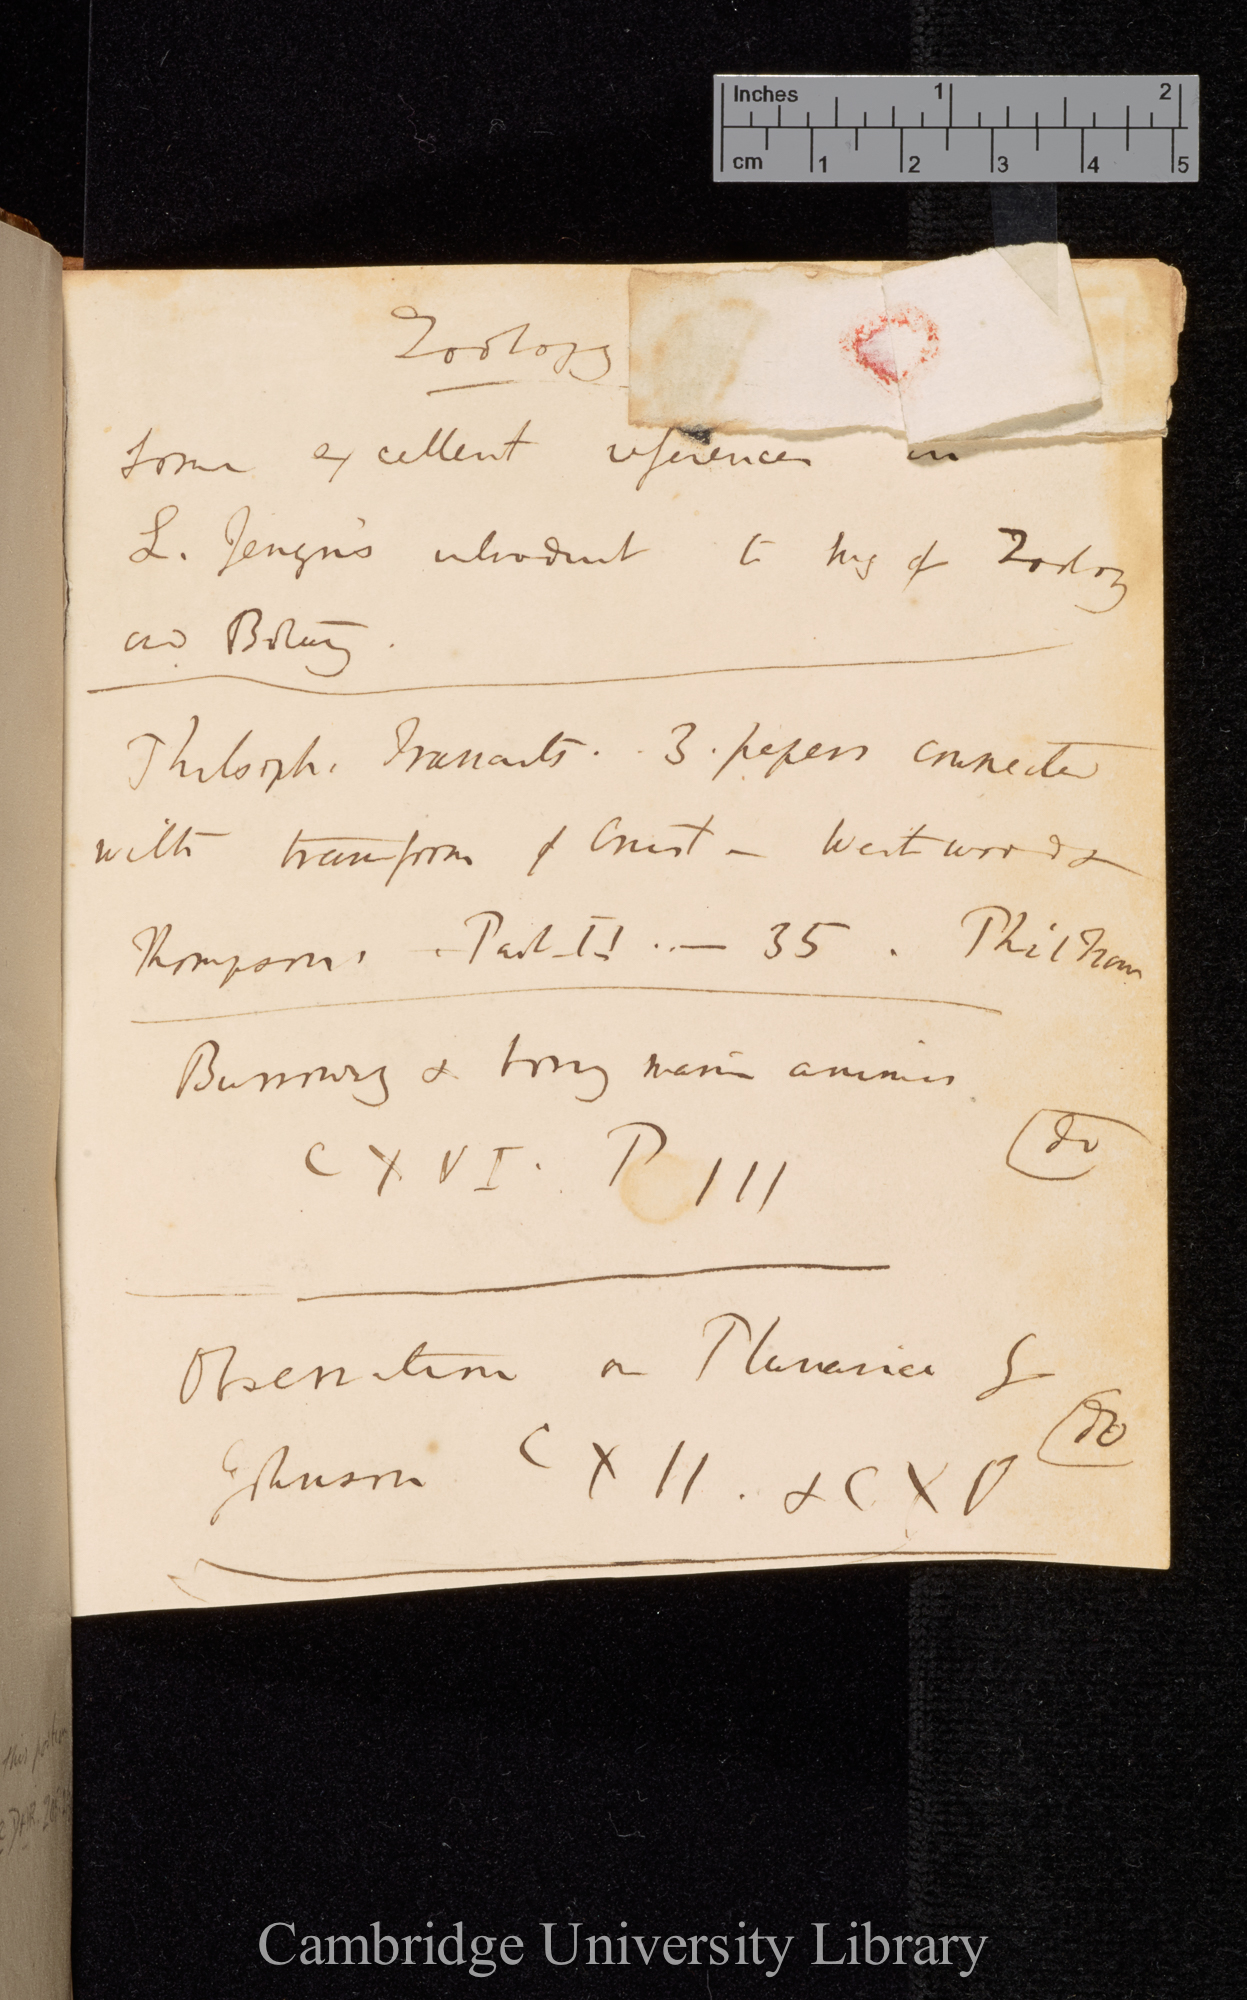 Inches 1 2
cm 1 2 3 4 5
Zoology
Some excellent references in
L. Jenyns introduct to Mag of Zoolog
and Botany.
Philosoph. Transacts. 3. papers connected
with transform of Crust — Westwood &
Thompson. Part II — 35. Phil Tran
Burrowing & boring marine animals
CXVI. P III do
Observation on Planariae by
Johnson CXII. & CXV do
Cambridge University Library